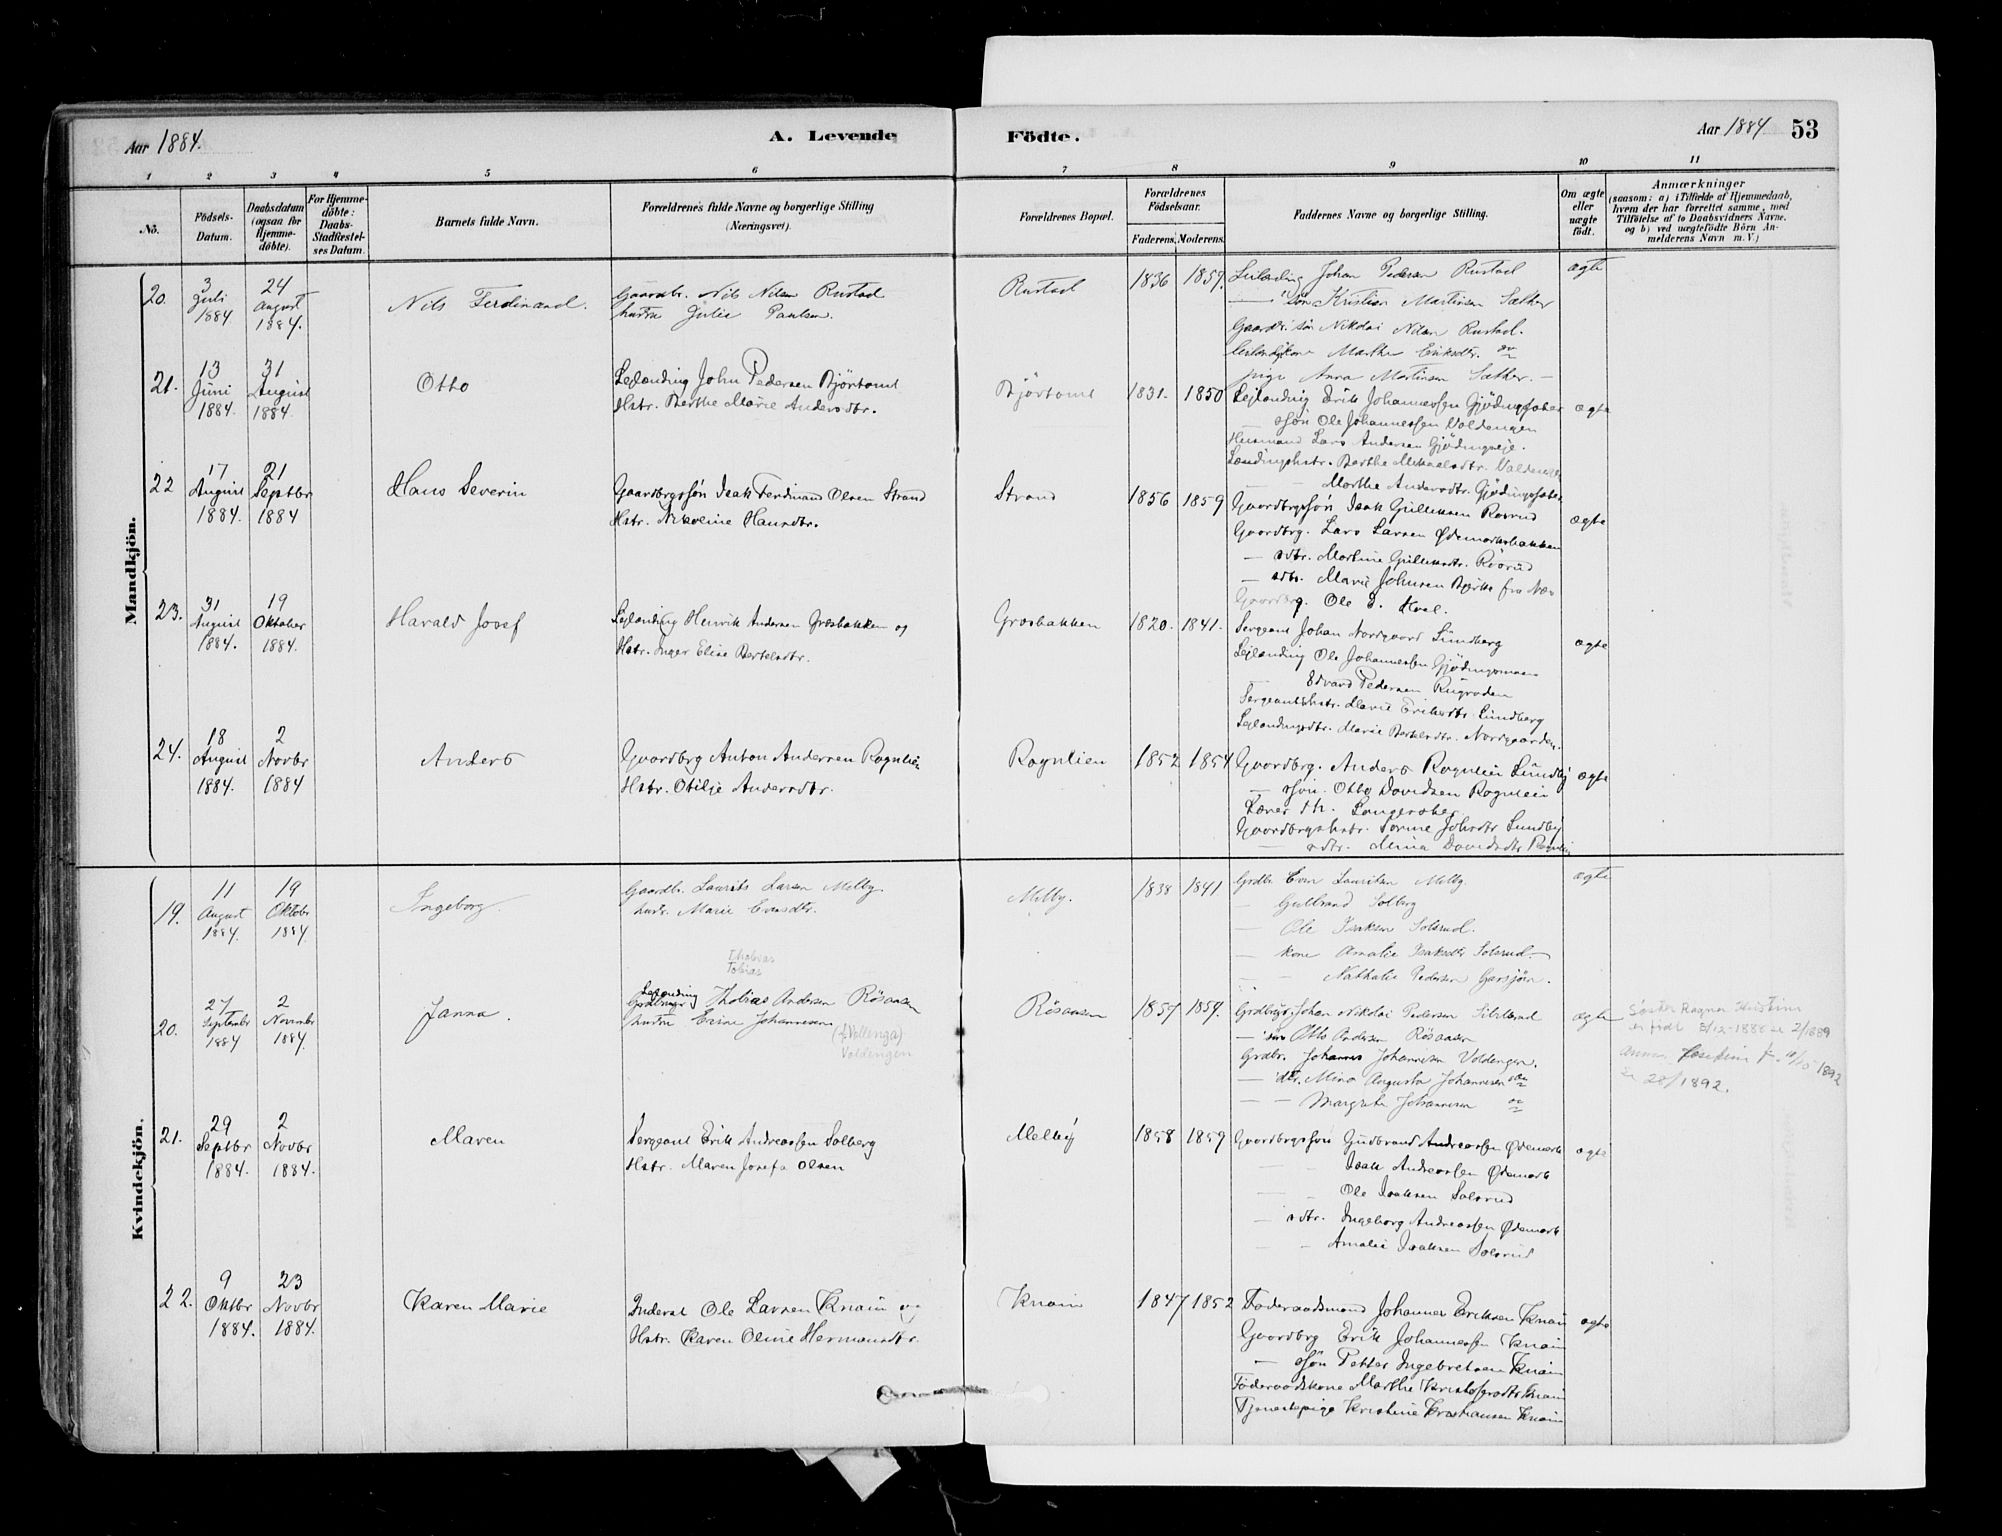 Aar 1884.
A. Levende
Födte.
Aar 1884
53
1 2 3 4 5 6 7 8 9 10 11
No.
Födsels-Datum.
Daabsdatum (ogsaa for Hjemme-döbte).
For Hjemme-döbte: Daabs-Stadfæstel-ses Datum.
Barnets fulde Navn.
Forældrenes fulde Navne og borgerlige Stilling (Næringsvei).
Forældrenes Bopæl.
Forældrenes Födselsaar.
Faderens. Moderens.
Faddernes Navne og borgerlige Stilling.
Om ægte eller uægte födt.
Anmærkninger
(saasom: a) i Tilfælde af Hjemmedaab, hvem der har forrettet samme, med Tilföielse af to Daabsvidners Navne. og b) ved uægtefödte Börn An-melderens Navn m. V.)
Mandkjön.
20.
3 Juli 1884
24 August 1884.
Nils Ferdinand.
Gaardbr. Nils Nilsen Rustad
hustru Julie Paulsen.
Rustad
1836
1857.
Leilending Johan Pedersen Rustad
— søn Kristian Martinsen Sæther
Gaardbr. søn Nikolai Nilsen Rustad.
Marthe Eriksdtr.
pige Anna Martinsen Sæther. —
ægte
21.
13 Juni 1884.
31 August 1884.
Otto
Lejlænding John Pedersen Bjørtomt
Hstr. Berthe Marie Andersdtr.
Bjørtomt
1831.
1850
Lejlænding Erik Johannessen
— søn Ole Johannessen Voldengen
Husmand Lars Andersen Gjødingseje.
Lændingshstr. Berthe Mikaelsdtr.
— Marthe Andersdtr.
ægte
22
17 August 1884.
21 Septbr 1884
Hans Severin
Gaardbrgssøn Isak Ferdinand Olsen Strand
Hstr. Nikoline Hansdtr.
Strand
1856
1859
Gaardbrgssøn Isak Gulliksen
Gaardbrg. Lars Larsen Ødemarksbakken
— sdtr. Martine Gulliksdtr.
— sdtr. Marie Johnsen
Gaardbrg. Ole E. Hval.
ægte
23.
31 August 1884.
19 Oktober 1884.
Harald Josef
Lejlænding Henrik Andersen Græsbakken og
Hstr. Inger Elise Bertelsdtr.
Græsbakken
1820.
1841.
Sergeant Johan Nordgaard Lundberg
Lejlænding Ole Johannessen
Edvard Pedersen
Sergeantshstr. Marie Eriksdtr. Lundberg
Lejlændingsdtr. Marie Bertelsdtr. Nordgaarden.
ægte
24.
18 August 1884.
2 Novbr 1884
Anders
Gaardbrg Anton Andersen Rognlien
Hstr. Otilje Andersdtr.
Rognlien
1852
1854
Gaardbrg. Anders Rognlien Lundby
— søn. Otto Davidsen Rognlien
Lærer Th. Langesæter
Gaardbrgshstr. Sorine Johsdtr Lundby
— sdtr. Mina Davidsdtr
ægte
Kvindekjön.
19.
11 August 1884.
19 Oktobr 1884.
Ingeborg.
Gaardbr. Laurits Larsen Melby.
hustr. Marie Evensdtr.
Melby.
1838
1841
Grdbr. Even Lauritsen Melby.
— Gulbrand Solberg
— Ole Isaksen Solsrud.
— kone Amalie Isaksdtr Solsrud —
— Nathalie Pedersen Garsjøen.
ægte
20.
27 Septembr 1884
2 Novembr 1884.
Janna.
Thobias
Tobias
Lejlænding
Thobias Andersen Røsaasen
hustru Erine Johannesen
(Vollenga)
Voldengen
Røsaasen
1857
1859.
Johan Nikolai Pedersen
— søn Otto Andersen Røsaasen
Grdbr. Johannes Johannesen Voldengen.
— dtr. Mina Augusta Johannesen
— Margrete Johannesen
ægte
Søster Ragna Kristine
er født 8/12-1888 2/1889
Anna Josefine f. 1892
28/ 1892.
21.
29 Septbr 1884.
2 Novbr 1884.
Maren
Sergeant Erik Andreassen Solberg
Hstr. Maren Josefa Olsen
Melby
1858
1859
Gaardbrgssøn Gudbrand Andreassen Ødemark
Isak Andreassen Ødemark
— Ole Isaksen Solsrud
— sdtr. Ingeborg Andreassen Ødemark
— Amalie Isaksen Solsrud
ægte
22.
9 Oktbr 1884.
23 Novbr 1884.
Karen Marie
Inderst Ole Larsen Knain og
Hstr. Karen Oline Hermansdtr.
Knain
1847
1852
Føderaadsmand Johannes Eriksen Knain
Gaardbrg Erik Johannessen Knain
— søn Petter Ingebretsen Knain
Føderaadskone Marthe Kristofersdtr Knain
Tjenestepige Kristine Kristiansen Knain
ægte